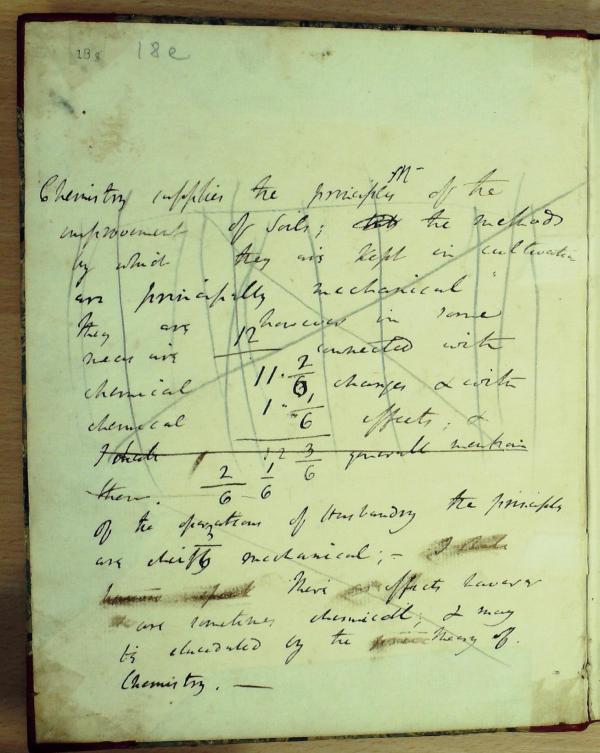 18e 18e
Chemistry supplies the principles of the
improvement of Soils; but the methods
by which they are kept in cultivation
are principally mechanical
they are however in some
measure connected with
12
chemical changes & with
11 2/6
chemical effects; &
1 1/6
I shall generally mention
12 3/6
them.
2/6 1/6
of the operations of Husbandry the principles
are chiefly mechanical; – I shall
Their effects however
are sometimes chemical; & may
be elucidated by the theory of
Chemistry. —